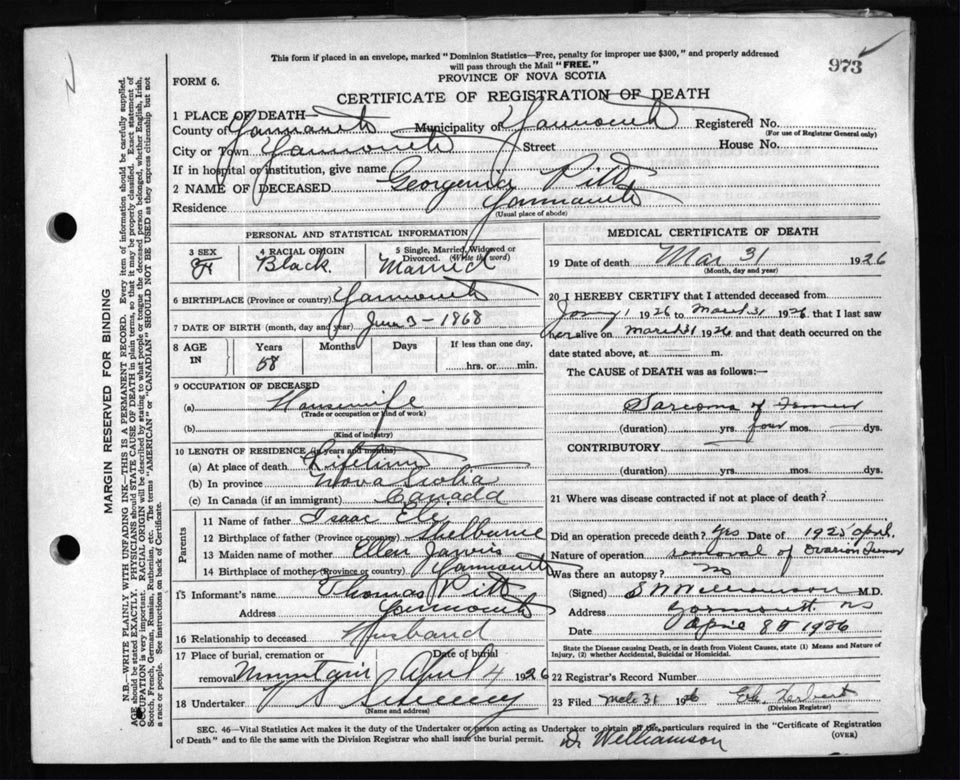 This form if placed in an envelope, marked "Dominion Statistics—Free, penalty for improper use $300," and properly addressed
will pass through the Mail "FREE."
973
FORM 6.
PROVINCE OF NOVA SCOTIA
CERTIFICATE OF REGISTRATION OF DEATH
MARGIN RESERVED FOR BINDING
N.B.—WRITE PLAINLY WITH UNFADING INK—THIS IS A PERMANENT RECORD. Every item of information should be carefully supplied.
AGE should be stated EXACTLY. PHYSICIANS should STATE CAUSE OF DEATH in plain terms, so that it may be properly classified. Exact statement of
OCCUPATION is very important. RACIAL ORIGIN will be described by stating to what people or tongue the deceased person belonged, whether English, Irish,
Scotch, French, German, Russian, Ruthenian, etc. The terms "AMERICAN" or "CANADIAN" SHOULD NOT BE USED as they express citizenship but not
a race or people. See instructions on back of Certificate.
1 PLACE OF DEATH—
County of Yarmouth Municipality of Yarmouth Registered No.
(For use of Registrar General only)
City or Town Yarmouth Street House No.
If in hospital or institution, give name
2 NAME OF DECEASED Georgenia Pitts
Residence Yarmouth
(Usual place of abode)
PERSONAL AND STATISTICAL INFORMATION
3 SEX F
4 RACIAL ORIGIN Black.
5 Single, Married, Widowed or Divorced. (Write the word) Married
6 BIRTHPLACE (Province or country) Yarmouth
7 DATE OF BIRTH (month, day and year) June 3 - 1868
8 AGE IN Years Months Days If less than one day,
58 hrs. or min.
9 OCCUPATION OF DECEASED
(a) Housewife
(Trade or occupation or kind of work)
(b)
(Kind of industry)
10 LENGTH OF RESIDENCE (in years and months)
(a) At place of death Lifetime
(b) In province Nova Scotia
(c) In Canada (if an immigrant) Canada
Parents
11 Name of father Isaac
12 Birthplace of father (Province or country) Shelburne
13 Maiden name of mother Ellen Jarvis
14 Birthplace of mother (Province or country) Yarmouth
15 Informant's name Thomas Pitts
Address Yarmouth
16 Relationship to deceased Husband
17 Place of burial, cremation or removal Date of burial
Mountain April 4 1926
18 Undertaker V S Sweeney
(Name and address)
MEDICAL CERTIFICATE OF DEATH
19 Date of death Mar 31 1926
(Month, day and year)
20 I HEREBY CERTIFY that I attended deceased from
Jany 1 1926 to March 31 1926 that I last saw
her alive on March 31 1926 and that death occurred on the
date stated above, at m.
The CAUSE of DEATH was as follows:—
Sarcoma of Femur
(duration) yrs. four mos. dys.
CONTRIBUTORY
(duration) yrs. mos. dys.
21 Where was disease contracted if not at place of death?
Did an operation precede death? Yes Date of 1925 April.
Nature of operation removal of Ovarian Tumor
Was there an autopsy? no
(Signed) S W Williamson M.D.
Address Yarmouth NS
Date April 8 1926
State the Disease causing Death, or in death from Violent Causes, state (1) Means and Nature of Injury, (2) whether Accidental, Suicidal or Homicidal.
22 Registrar's Record Number
23 Filed Mch 31 1926 Herbert
(Division Registrar)
SEC. 46—Vital Statistics Act makes it the duty of the Undertaker or person acting as Undertaker to obtain all the particulars required in the "Certificate of Registration
of Death" and to file the same with the Division Registrar who shall issue the burial permit. (OVER)
Dr Williamson